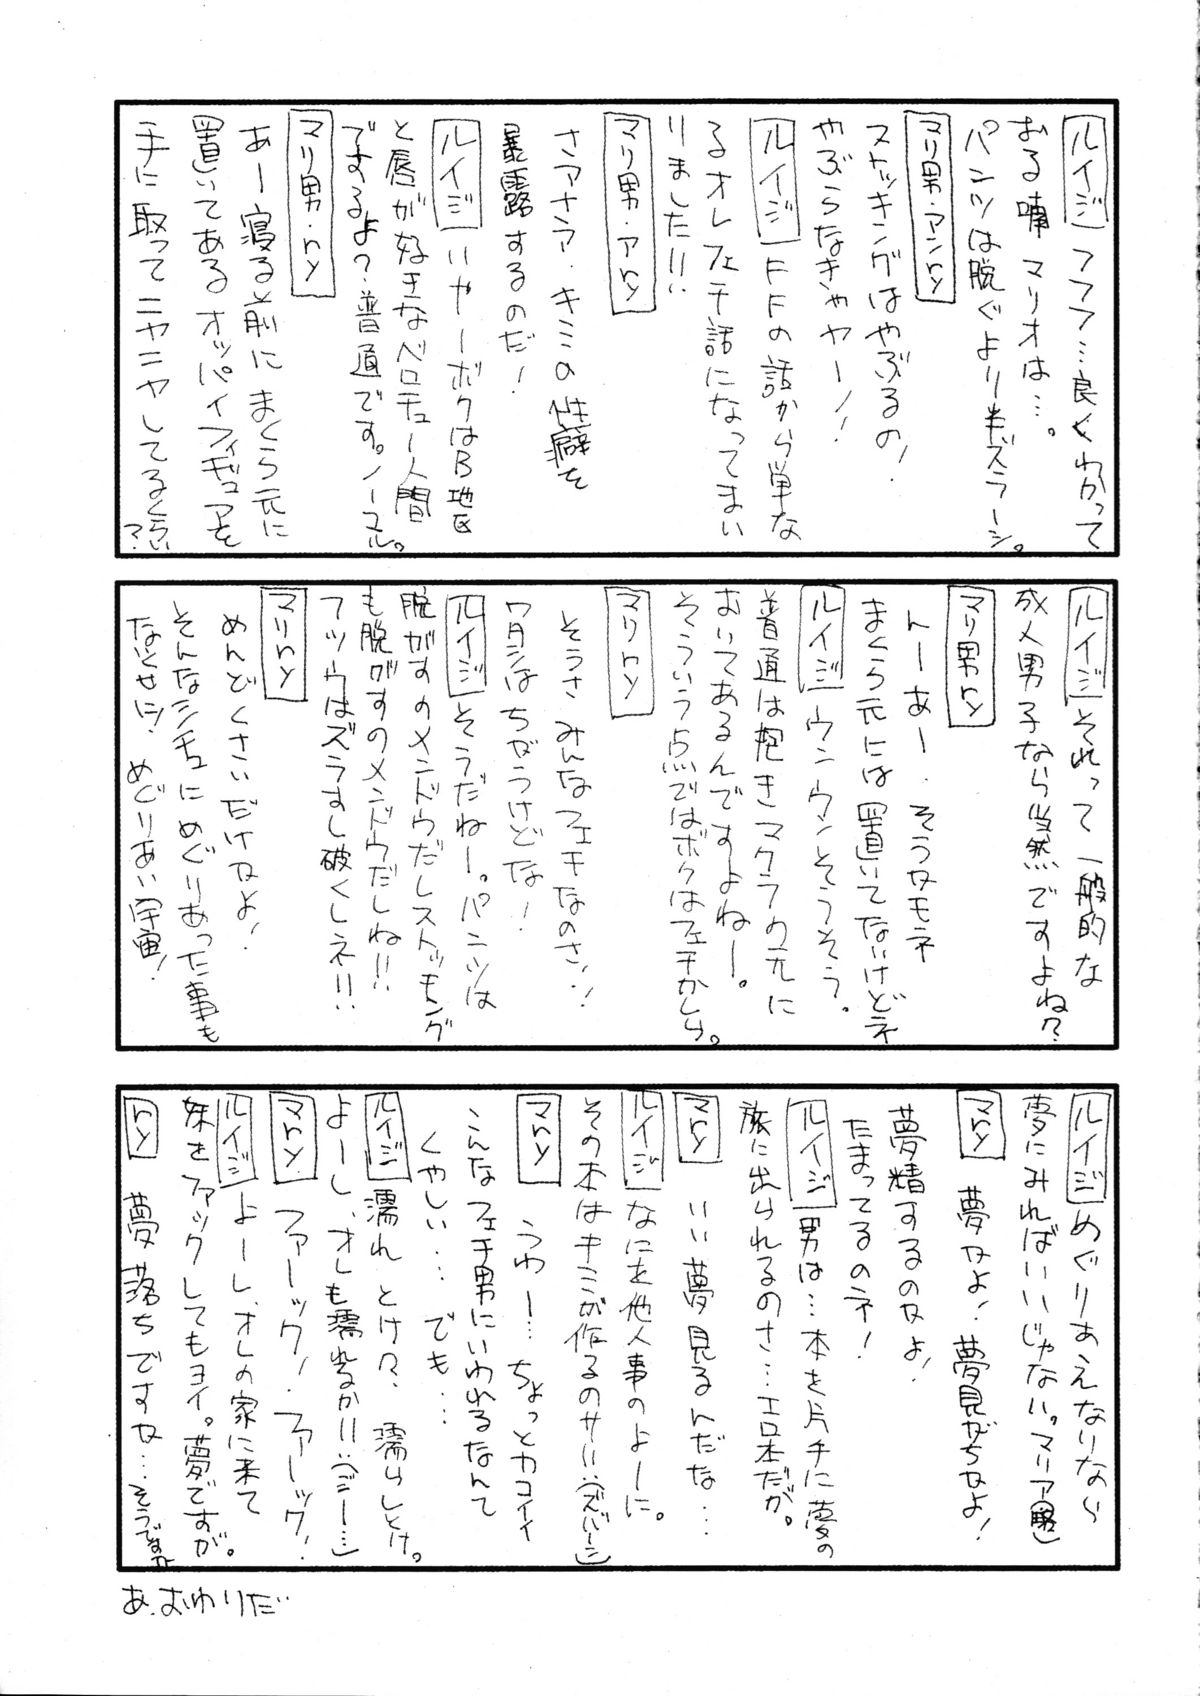 ルイジ フフフ…良くわかって
おる喃 マリオは…。
パンツは脱ぐより半ズラーシ。
マリ男・アンry
ストッキングはやぶるの!
やぶらなきゃヤー!!
ルイジ FFの話から単な
るオレフェチ話になってまい
りました!!
マリ男・アry
さアナタ・キミの性癖を
暴露するのだ!
ルイジ いやーボクはB地区
と唇が好きなベロチュー人間
ですよ?普通です。ノーマル。
マリ男・ry
あー寝る前にまくら元に
置いてあるオッパイフィギュアを
手に取ってニヤニヤしてるくらい
?
ルイジ それって一般的な
成人男子なら当然ですよね?
マリ男ry
んーあー・そうなモネ
まくら元には置いてないけどネ
ルイジ ウンウンそうそう。
普通は抱きマクラの元に
おいてあるんですよねー。
そういう点ではボクはフェチかしら。
マリry
そうさ みんなフェチなのさ!!
ワタシはちがうけどな!
ルイジ そうだねー。パンツは
脱がすのメンドウだしストッキング
も脱がすのメンドウだしね!!
フツウはズラすし破くしネ!!
マリry
めんどくさいだけかよ!
そんなシチュにめぐりあった事も
なくせに!めぐりあい宇宙!
ルイジ めぐりあえないなら
夢にみればいいじゃない。マリア(略)
マry
夢かよ!夢見がちかよ!
夢精するのかよ!
たまってるのネ!
ルイジ 男は…本を片手に夢の
旅に出られるのさ…エロ本だが。
マry
いい夢見るんだな…
ルイジ なにを他人事のよーに。
その本はキミが作るのサ!!(ズバーン)
マry
うわー…ちょっとカコイイ
こんなフェチ男にいわれるなんて
くやしい…でも…
ルイジ 濡れとけ々、濡らしとけ。
よーし、オレも濡れるか!!(ジー…)
マry
ファーック!ファーック!
ルイジ よーし、オレの家に来て
妹をファックしてもヨイ。夢ですが。
ry
夢落ちですか…そうですか
あ、おわりだ